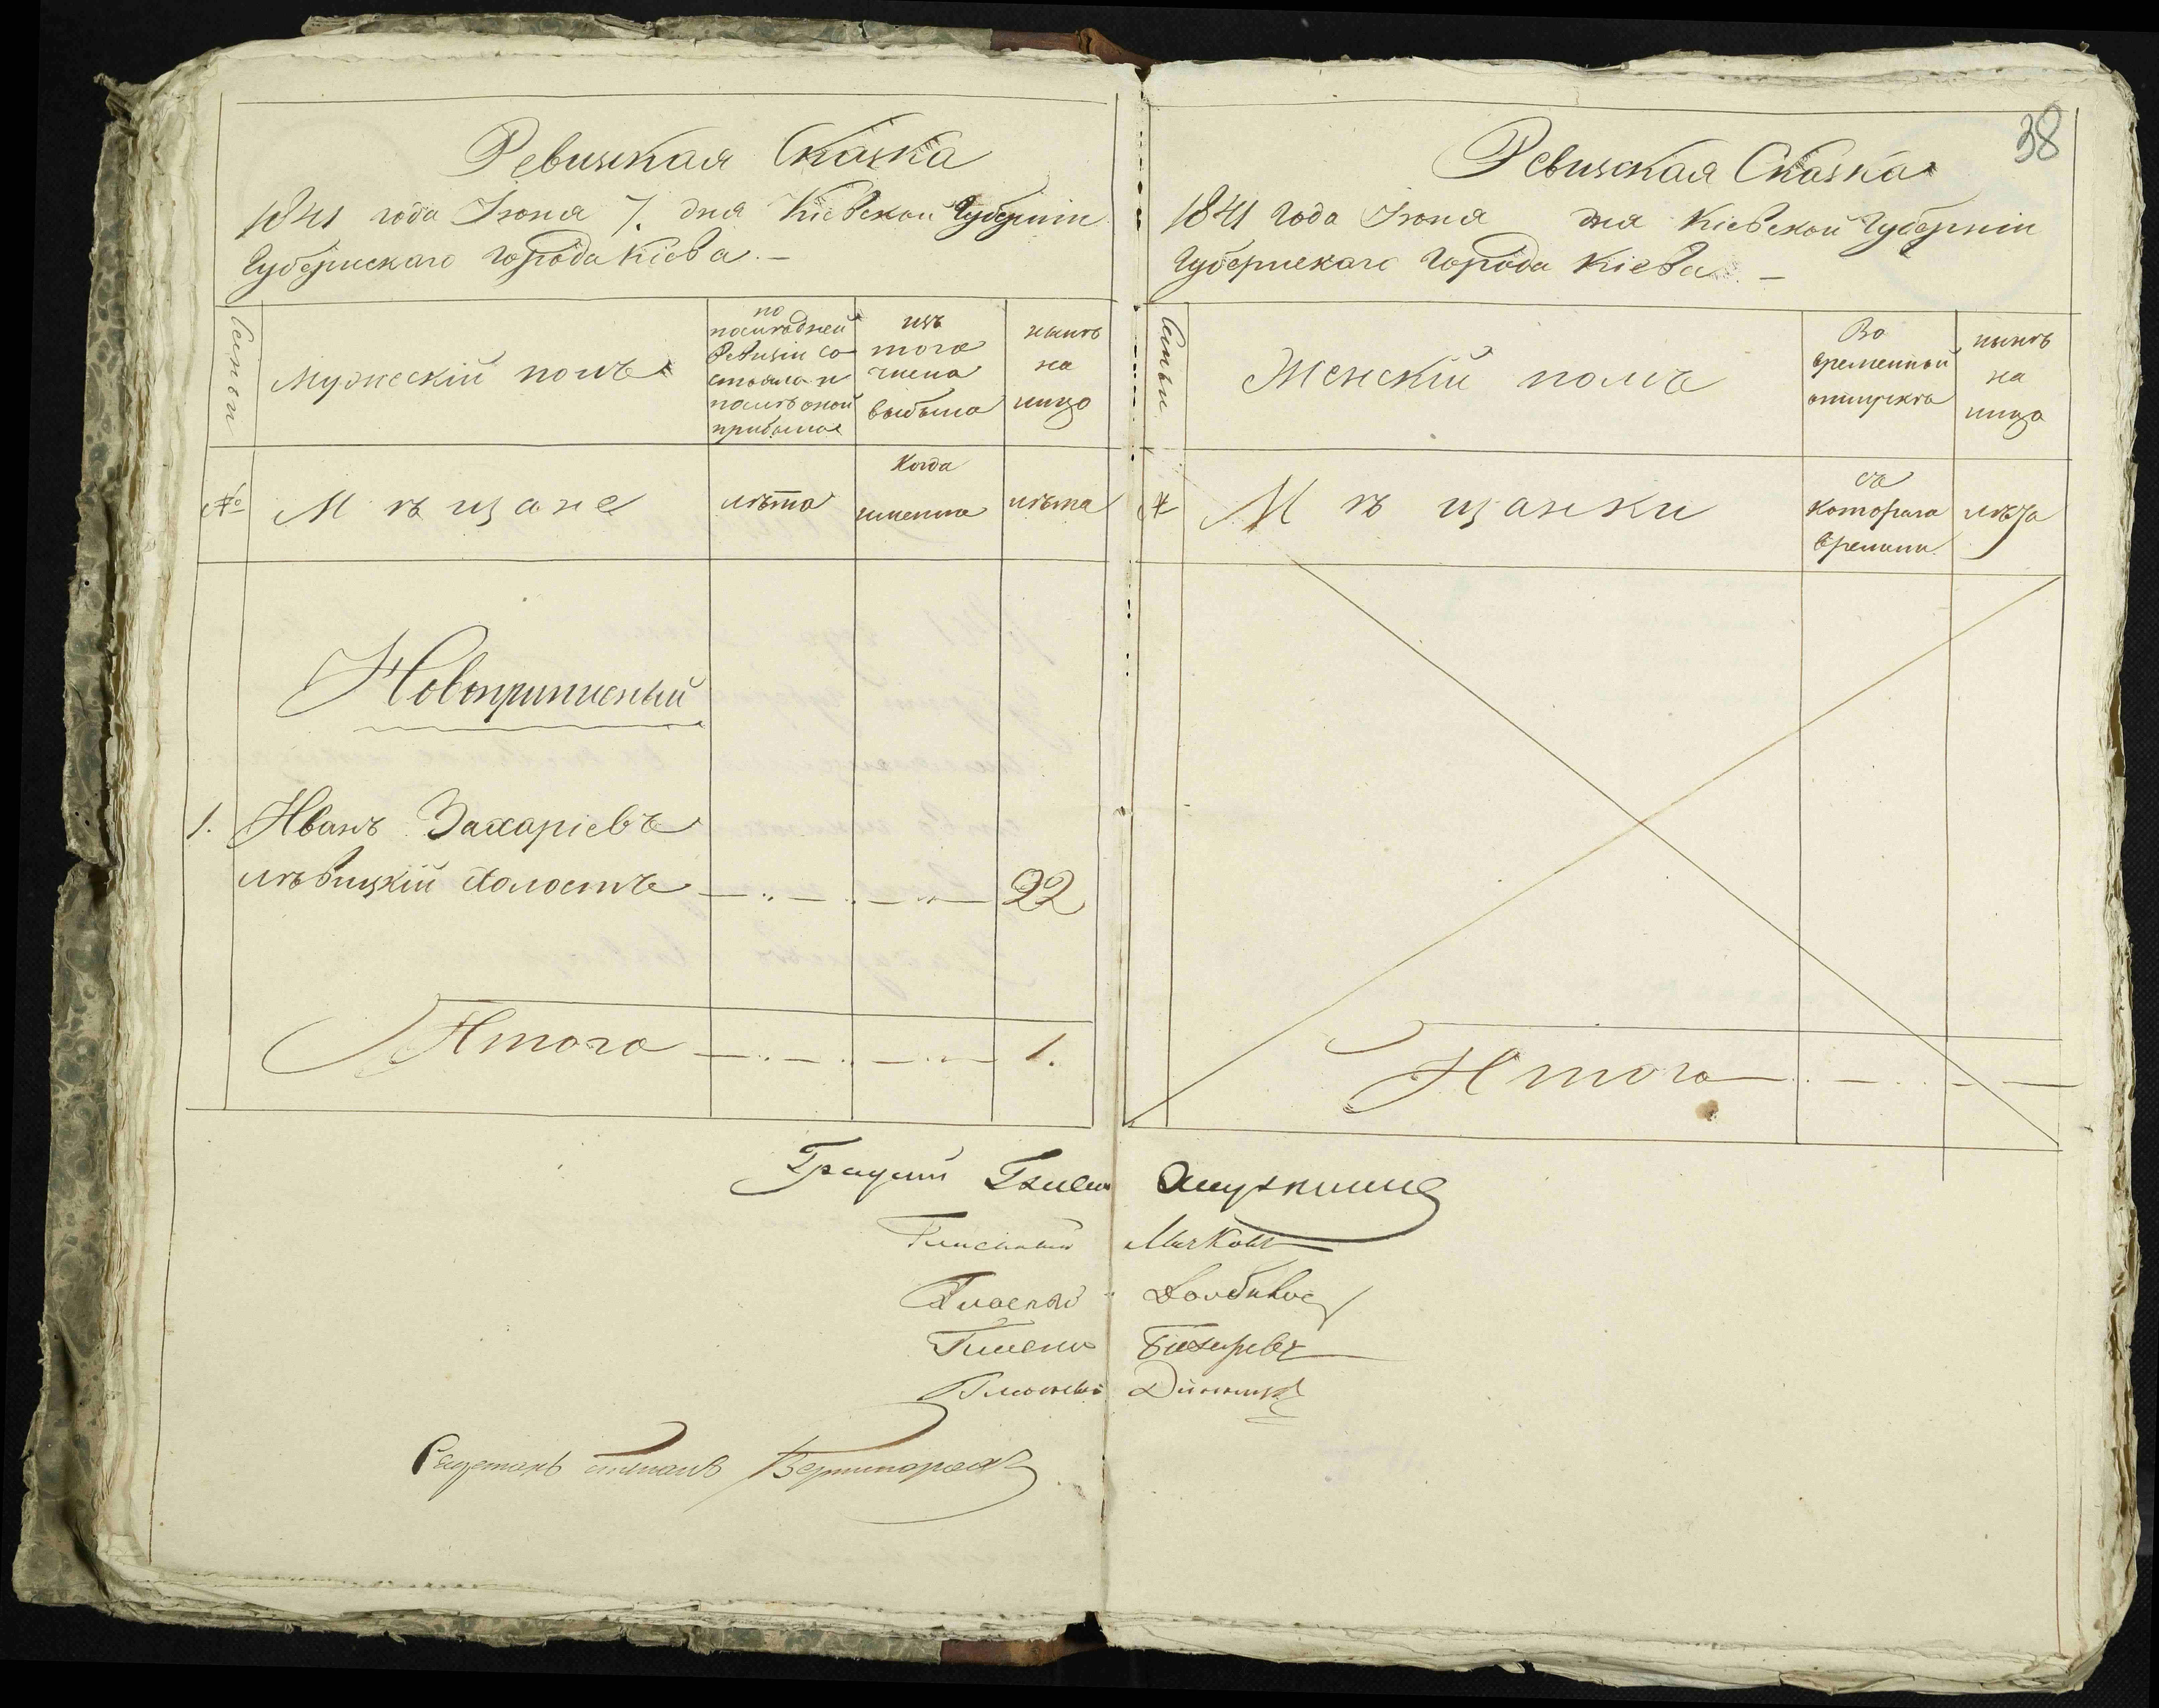 Ревизская Сказка
1841 года Іюня 7. дня Кіевской Губерніи
Губернскаго города Кіева. —
Семьи
Мужескій полъ
по
послѣдней
Ревизіи со-
стояло и
послѣ оной
прибыло
изъ
того
числа
выбыло
нынѣ
на
лицо
№
Мѣщане
лѣта
Когда
именно
лѣта
Новоприписный
1. Иванъ Захаріевъ
Лѣвицкій холостъ — .. — .. — .. — 22
Итого — .. — .. — .. — 1.
38
Ревизская Сказка
1841 года Іюня дня Кіевской Губерніи
Губернскаго города Кіева. —
Семьи
Женскій полъ
Во
временной
отлучкѣ
нынѣ
на
лицо
№
Мѣщанки
съ
котораго
времени
лѣта
Итого — .. — .. — —
Гласный
Гласный
Гласный
Гласный
Степанъ